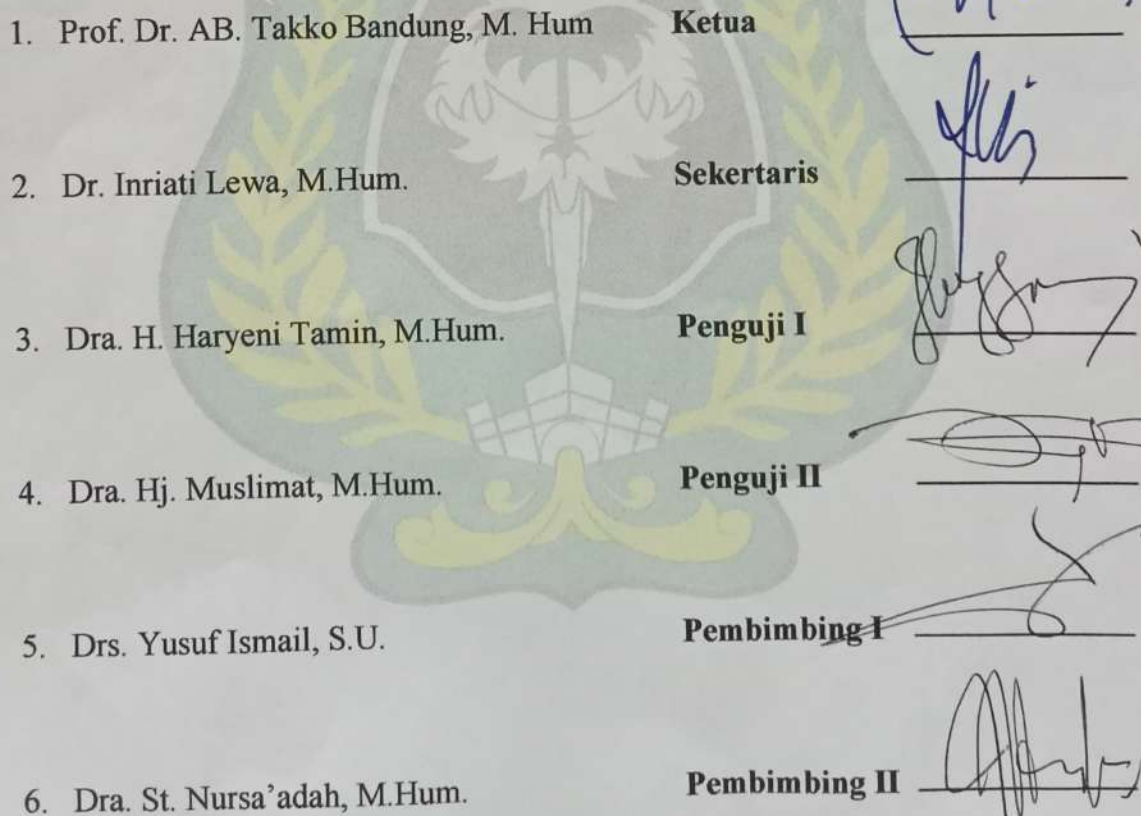 1. Prof. Dr. AB. Takko Bandung, M. Hum Ketua
2. Dr. Inriati Lewa, M.Hum. Sekertaris
3. Dra. H. Haryeni Tamin, M.Hum. Penguji I
4. Dra. Hj. Muslimat, M.Hum. Penguji II
5. Drs. Yusuf Ismail, S.U. Pembimbing I
6. Dra. St. Nursa’adah, M.Hum. Pembimbing II